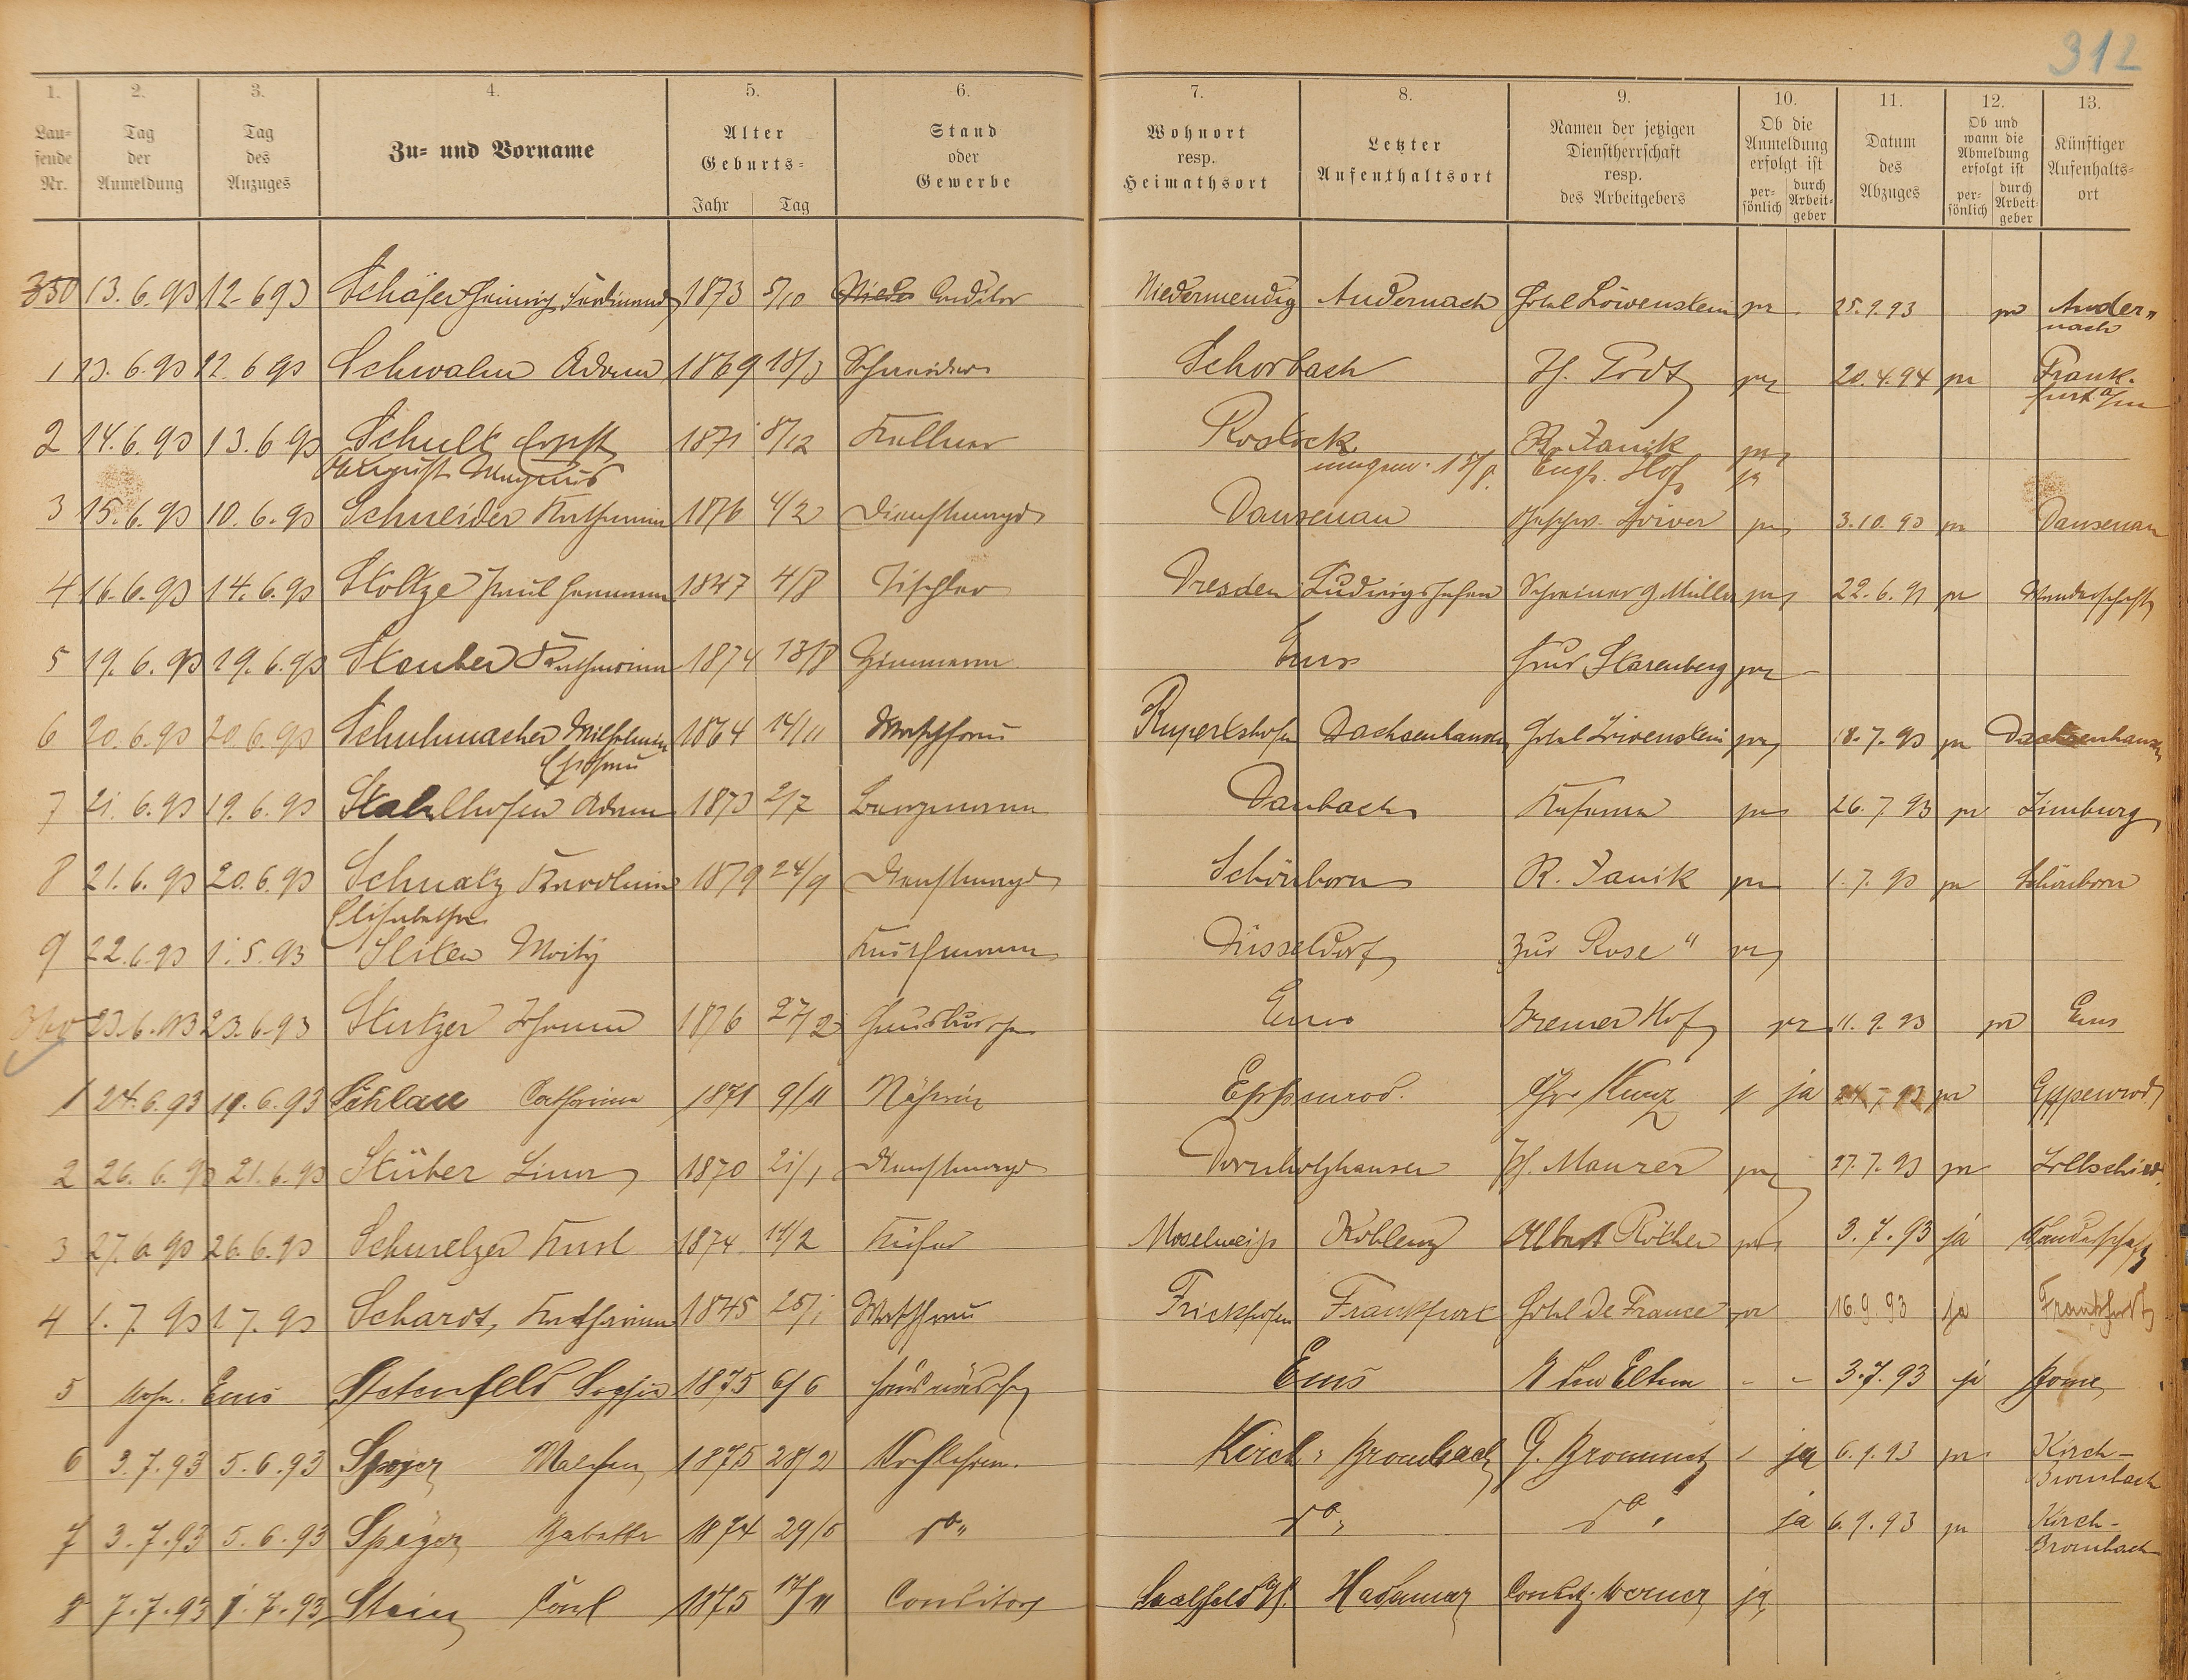 312
1. 2. 3. 4. 5. 6. 7. 8. 9. 10. 11. 12. 13.
Laufende Nr. Tag der Anmeldung Tag des Anzuges Zu- und Vorname Alter Geburts- Jahr Tag Stand oder Gewerbe Wohnort resp. Heimathsort Letzter Aufenthaltsort Namen der jetzigen Dienstherrschaft resp. des Arbeitgebers Ob die Anmeldung erfolgt ist persönlich durch Arbeitgeber Datum des Abzuges Ob und wann die Abmeldung erfolgt ist persönlich durch Arbeitgeber Künftiger Aufenthaltsort
350 13.6.93 12.6 93 Schäfer Heinrich Ferdinand 1873 5/10 Conditor Niedermendig Andernach Hotel Löwenstein pr 25.9.93 pr Ander„
nach
1 13.6.93 12 6 93 Schwalm Adam 1869 18/3 Schneider Schorbach pr 20.4.94 pr Frank-
furt a/m
2 14.6.93 13.6 93 Schult Ernst 1871 8/12 Kellner Rostock R. Janik pr
August Magnus Engl. Hof ja
3 15.6.93 10.6.93 Schneider Katharina 1876 4/2 Dienstmagd Dausenau pr 3.10.93 pr Dausenau
4 16.6.93 14.6.93 Stoltze Paul Hermann 1847 4/8 Tischler Dresden Ludwigshafen Schreiner G. Müller pr 22.6.93 pr Wanderschaft
5 19.6.93 19.6.93 Katharina 1874 13/8 Ems Starenberg pr
6 20.6.93 20 6.93 Schuhmacher Wilhelm 1864 14/11 Waschfrau Rupertshofen Dachsenhausen Hotel Löwenstein pr 18.7.93 pr Dachsenhausen
Ehefrau
7 21.6.93 19.6.93 Stahlhofen Adam 1873 2/7 Bergmann Daubach pr 26.7.93 pr Limburg
8 21.6.93 20.6.93 Schmalz Karoline 1879 24/9 Dienstmagd Schönborn R. Janik pr 1.7.93 pr Schönborn
Elisabetha
9 22.6.93 1.5.93 Moritz Kaufmann Düsseldorf zur Rose" pr
360 23.6.93 23.6.93 Stutzer Johann 1876 27/2 Hausbursche Ems Bremer Hof pr 11.9.93 pr Ems
1 24.6.93 19.6.93 Catharina 1871 9/11 Näherin Eppenrod. Chr Kunz ja 24.7.93 pr Eppenrod
2 26.6.93 21.6.93 Stüber Lina 1870 21/1 Dienstmagd Dornholzhausen Ph. Maurer pr 27.7.93 pr Lollschied
3 27.6 93 26.6.93 Schmelzer Karl 1874 14/2 Küfer Moselweiß Koblenz Albert Röther pr 3.7.93 ja Wanderschaft
4 1.7.93 1 7.93 Schardt, Katharina 1845 25/1 Waschfrau Frickhofen Frankfurt Hotel de France pr 16.9.93 ja Frankfurt
5 Ems Stetenfeld Sophie 1875 6/6 Hausmädchen Ems - - 3.7.93 ja
6 3.7.93 5.6.93 Speyer Malchen 1875 28/2 Kochlehrm. Kirch- Brombach ja 6.9.93 pr Kirch-
Brombach
7 3.7.93 5.6.93 Speyer Babette 1874 29/5 do„ do„ do„ ja 6.9.93 pr Kirch-
Brombach
8 7.7.93 1.7.93 Stein Carl 1875 17/11 Conditor Saalfeld Hadamar Condit. Werner ja